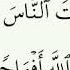 تَ ٱلنَّاسَ
ٱللَّهِ أَفْوَاجًا